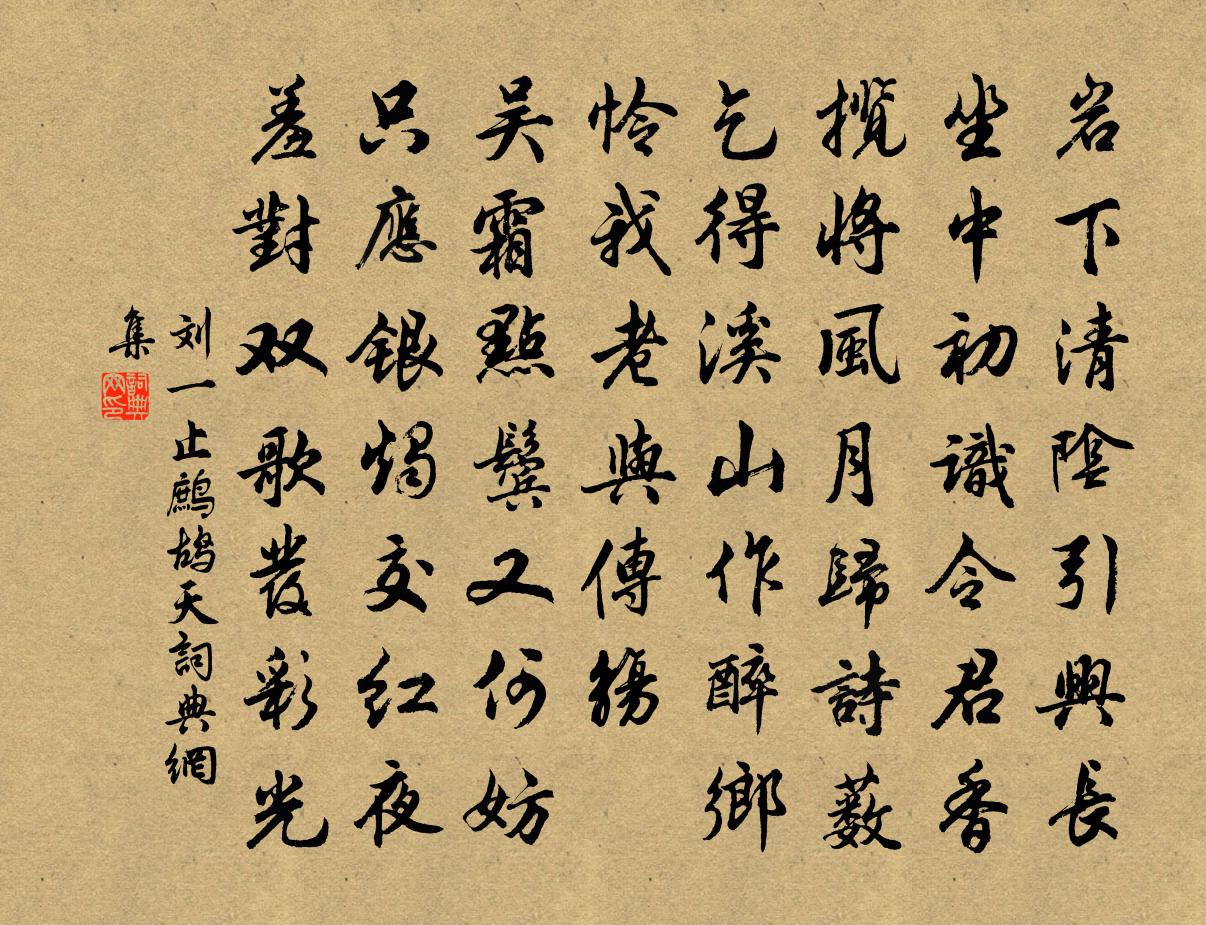 岩下清陰引興長
坐中初識令君香
攬將風月歸詩藪
乞得溪山作醉鄉
怜我老與傳觴
吴霜點鬢又何妨
只應銀燭交红夜
羞對双歌發彩光
刘一止鷓鴣天詞典網
集
詞典网印